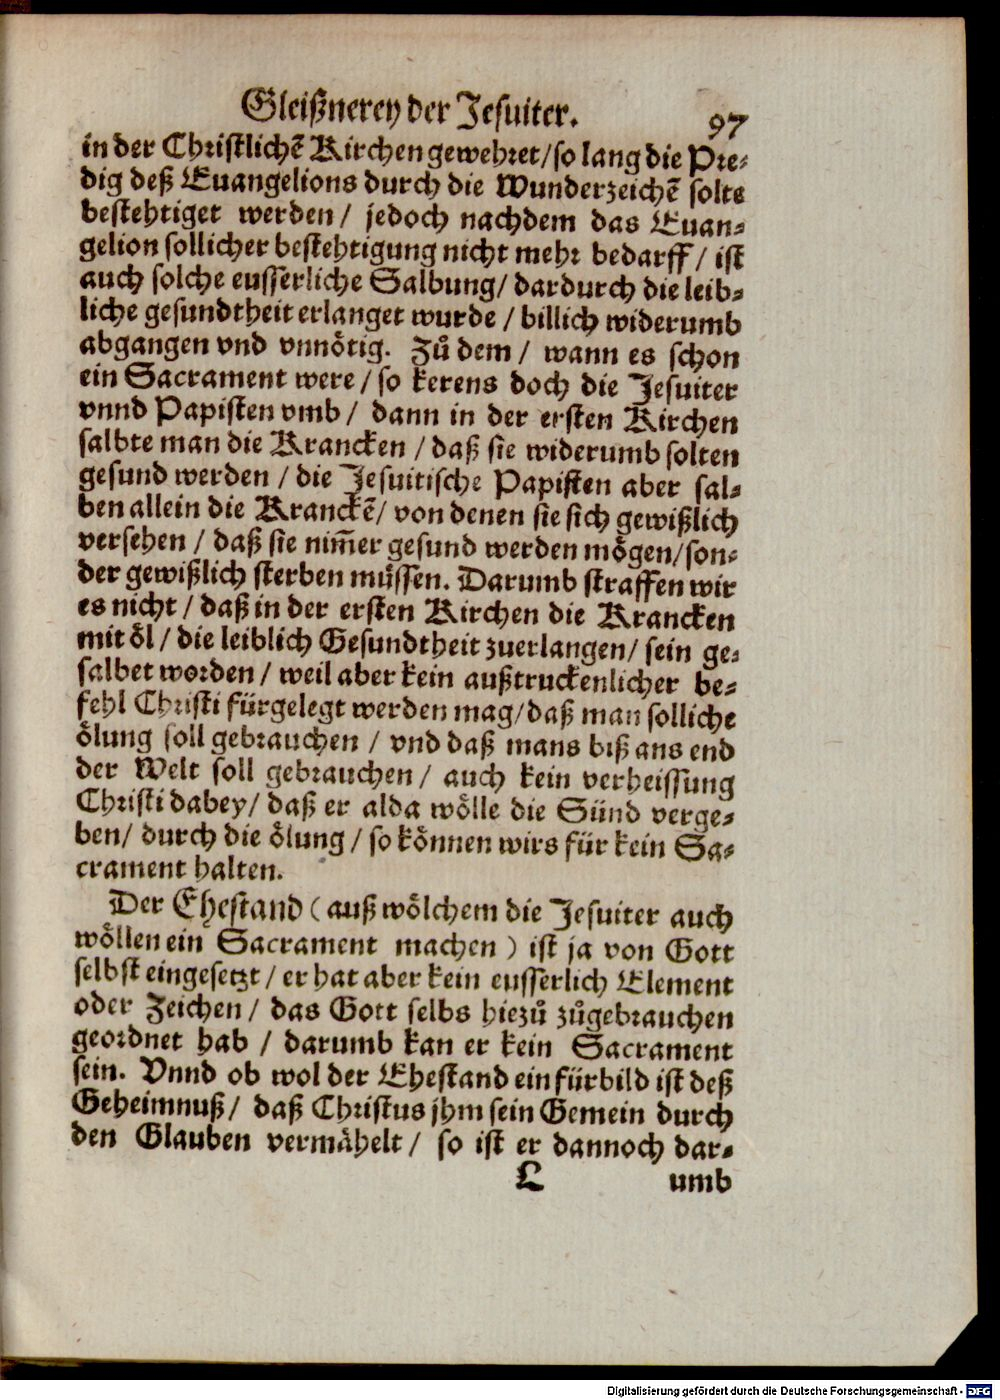 Gleißnerey der Jesuiter. 97
in der Christlichẽ Kirchen gewehret/so lang die Pre-
dig deß Euangelions durch die Wunderzeichẽ solte
bestehtiget werden / jedoch nachdem das Euan-
gelion sollicher bestehtigung nicht mehr bedarff / ist
auch solche eusserliche Salbung/ dardurch die leib-
liche gesundtheit erlanget wurde / billich widerumb
abgangen vnd vnnötig. Zů dem / wann es schon
ein Sacrament were / so kerens doch die Jesuiter
vnnd Papisten vmb / dann in der ersten Kirchen
salbte man die Krancken / daß sie widerumb solten
gesund werden / die Jesuitische Papisten aber sal-
ben allein die Kranckẽ/ von denen sie sich gewißlich
versehen / daß sie nim̃er gesund werden mögen/son-
der gewißlich sterben müssen. Darumb straffen wir
es nicht / daß in der ersten Kirchen die Krancken
mit öl / die leiblich Gesundtheit zuerlangen/ sein ge-
salbet worden / weil aber kein außtruckenlicher be-
fehl Christi fürgelegt werden mag/daß man solliche
ölung soll gebrauchen / vnd daß mans biß ans end
der Welt soll gebrauchen / auch kein verheissung
Christi dabey/ daß er alda wölle die Sünd verge-
ben/ durch die ölung / so können wirs für kein Sa-
crament halten.
Der Ehestand (auß wölchem die Jesuiter auch
wöllen ein Sacrament machen) ist ja von Gott
selbst eingesetzt / er hat aber kein eusserlich Element
oder Zeichen / das Gott selbs hiezů zůgebrauchen
geordnet hab / darumb kan er kein Sacrament
sein. Vnnd ob wol der Ehestand ein fürbild ist deß
Geheimnuß/ daß Christus jhm sein Gemein durch
den Glauben vermähelt / so ist er dannoch dar-
L umb
Digitalisierung gefördert durch die Deutsche Forschungsgemeinschaft - DFG